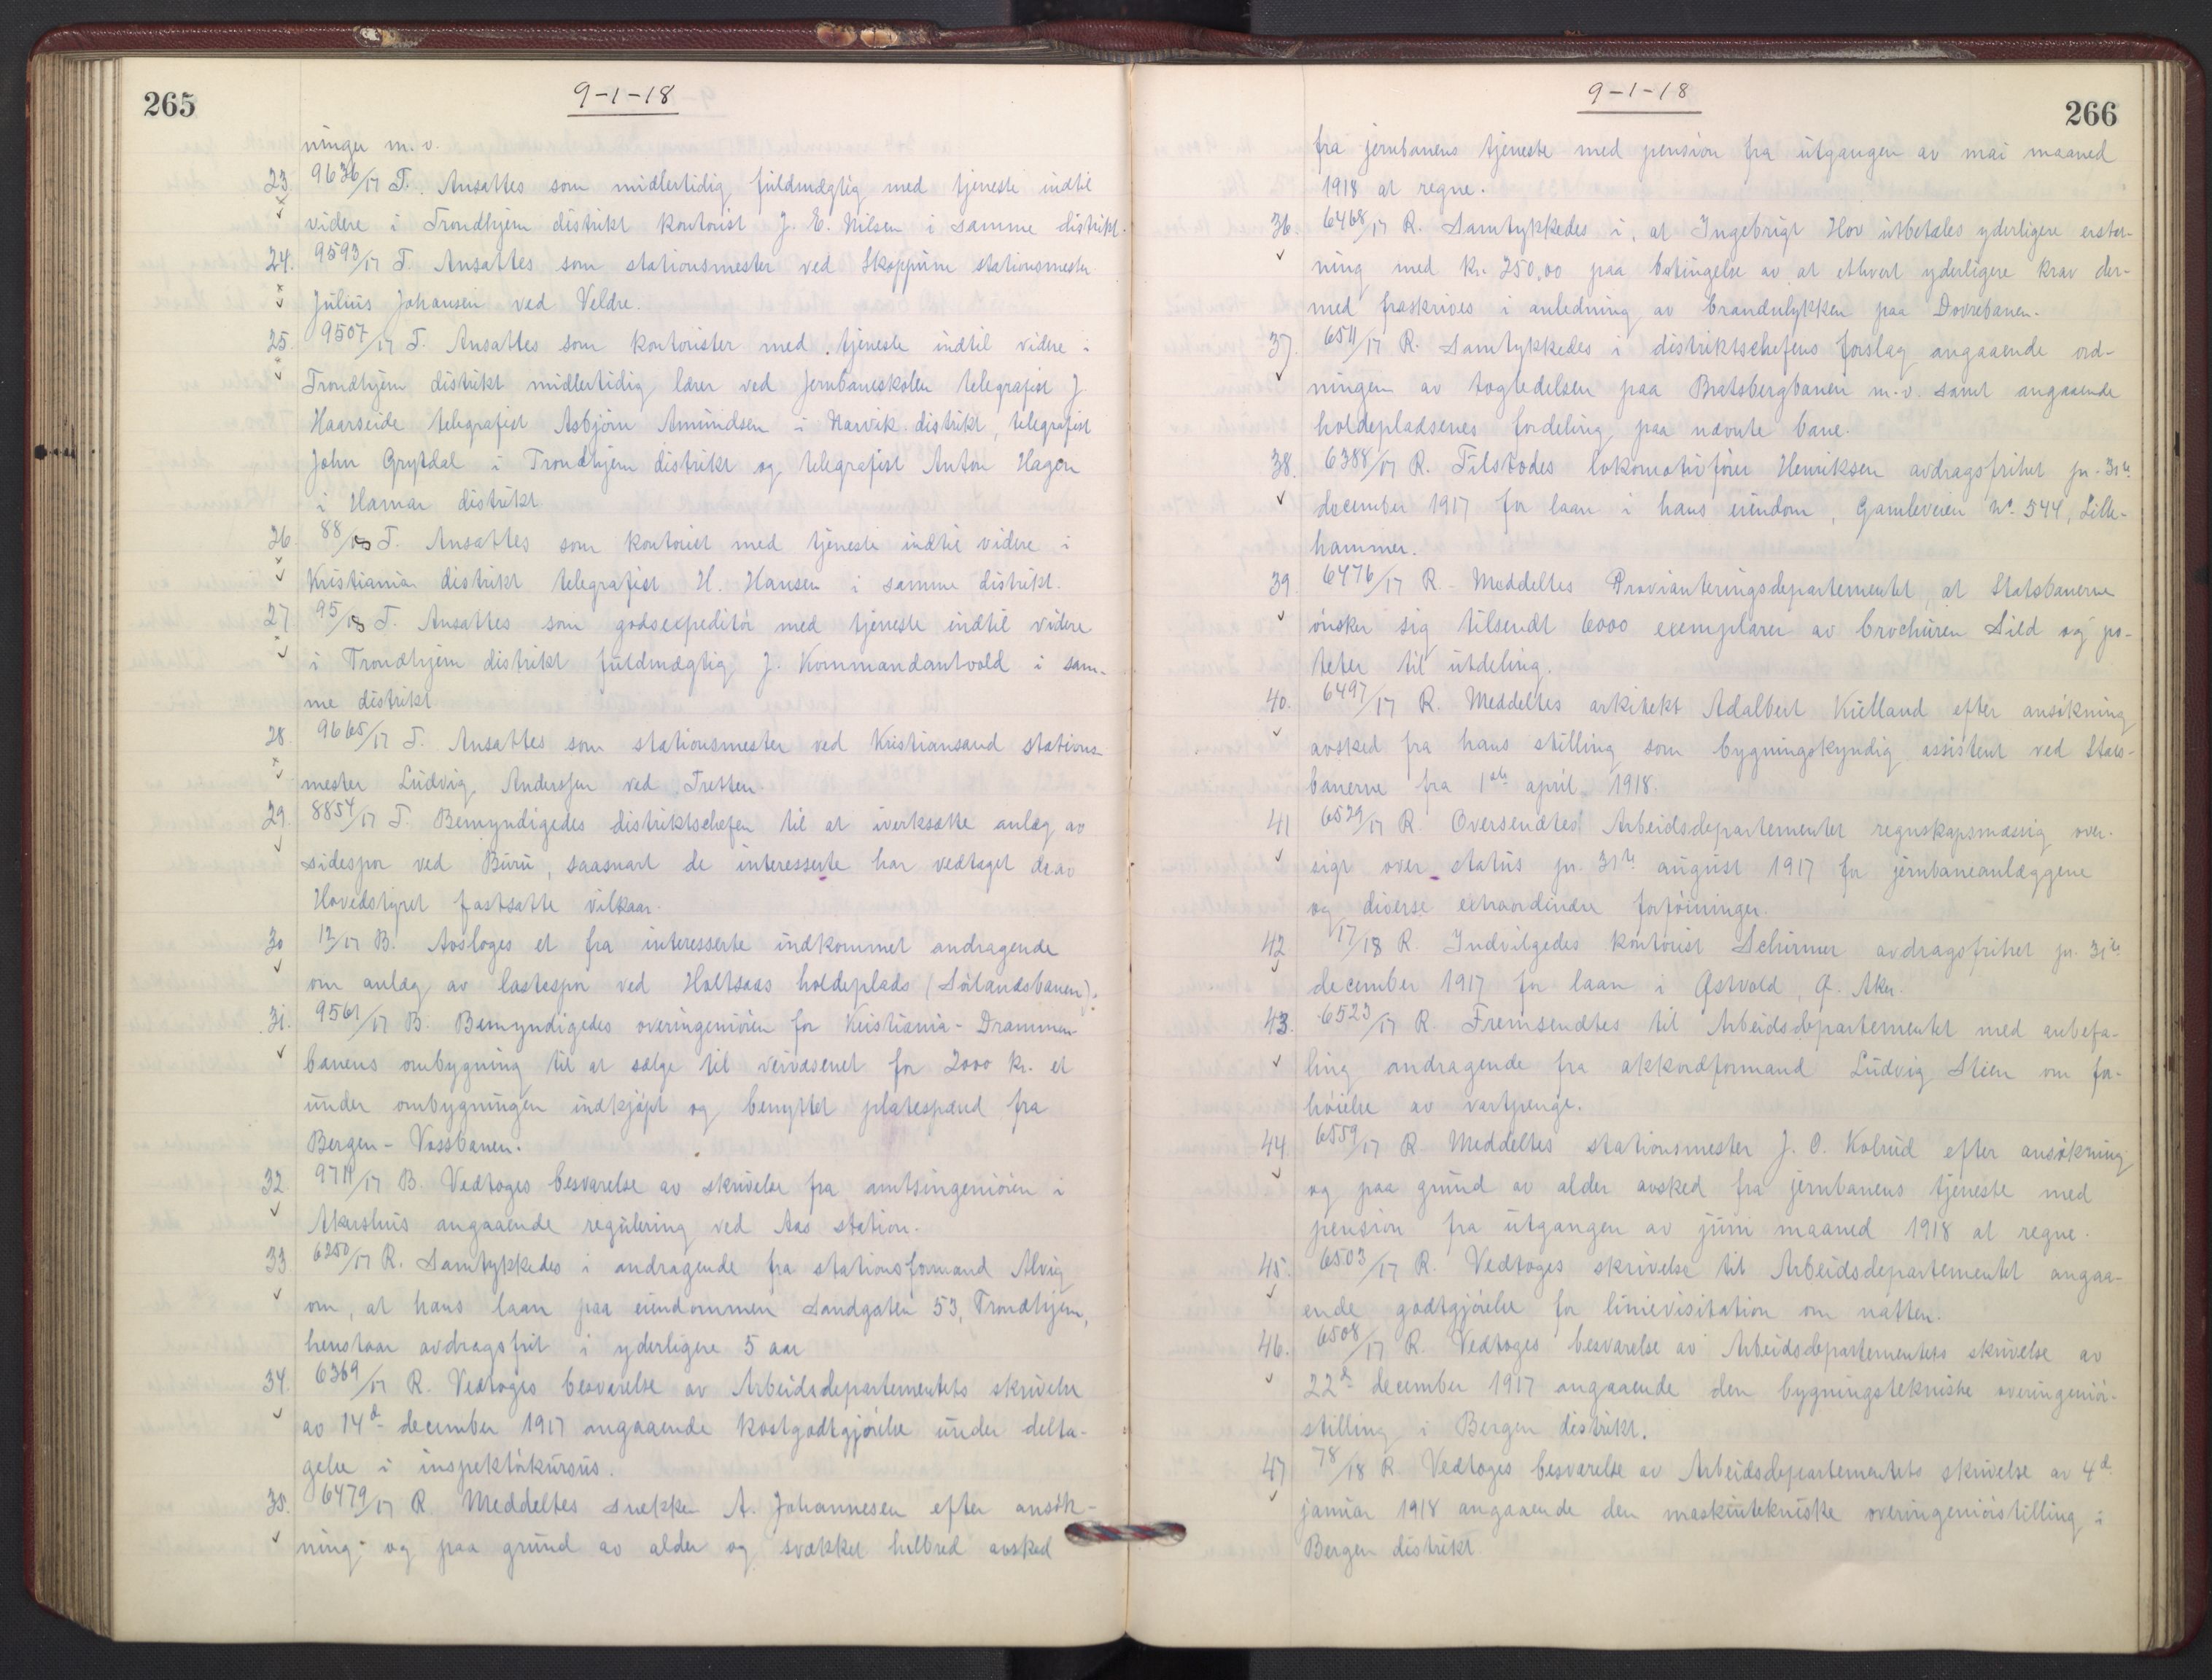 265
9-1-18
ninger m.v.
23. 9636/17 T. Ansattes som midlertidig fuldmægtig med tjeneste indtil
videre i Trondhjem distrikt kontorist J. E. Nilsen i samme distrikt.
24. 9593/17 T. Ansattes som stationsmester ved Skoppum stationsmester
Julius Johansen ved Veldre.
25. 9507/17 T. Ansattes som kontorister med tjeneste indtil videre i
Trondhjem distrikt midlertidig lærer ved Jernbaneskolen telegrafist J.
Haarseide telegrafist Asbjörn Amundsen i Narvik distrikt, telegrafist
John Grytdal i Trondhjem distrikt og telegrafist Anton Hagen
i Hamar distrikt
26. 88/18 T. Ansattes som kontorist med tjeneste indtil videre i
Kristiania distrikt telegrafist H. Hansen i samme distrikt.
27. 95/18 T. Ansattes som godsexpeditör med tjeneste indtil videre
i Trondhjem distrikt fuldmægtig J. Kommandantvold i sam-
me distrikt
28. 9665/17 T. Ansattes som stationsmester ved Kristiansand stations-
mester Ludvig Anderssen ved Tretten.
29. 8854/17 T. Bemyndigedes distriktschefen til at iverksætte anlæg av
sidespor ved Buru, saasnart de interesserte har vedtaget de av
Hovedstyret fastsatte vilkaar.
30 12/17 B. Avsloges et fra interesserte indkommet andragende
om anlæg av lastespor ved Holtsaas holdeplads (Sörlandsbanen).
31. 9561/17 B. Bemyndigedes overingeniören for Kristiania-Drammen-
banens ombygning til at sælge til veivæsenet for 2000 kr. et
under ombygningen indkjöpt og benyttet platespænd fra
Bergen-Vossbanen.
32 9711/17 B. Vedtoges besvarelse av skrivelse fra amtsingeniören i
Akershus angaaende regulering ved Aas station.
33 6250/17 R. Samtykkedes i andragende fra stationsformand Alvig
om, at hans laan paa eiendommen Sandgaten 53, Trondhjem,
henstaar avdragsfrit i yderligere 5 aar
34. 6369/17 R. Vedtoges besvarelse av Arbeidsdepartementets skrivelse
av 14d december 1917 angaaende kostgodtgjörelse under delta-
gelse i inspektörkursus.
35. 6479/17 R. Meddeltes snekker A. Johannesen efter ansök-
ning og paa grund av alder og svækket helbred avsked
9-1-18
266
fra jernbanens tjeneste med pension fra utgangen av mai maaned
1918 at regne.
36. 6468/17 R. Samtykkedes i, at Ingebrigt Hov utbetales yderligere erstat-
ning med kr. 250,00 paa betingelse av at ethvert yderligere krav der-
med fraskrives i anledning av brandulykken paa Dovrebanen.
37. 6511/17 R. Samtykkedes i distriktschefens forslag angaaende ord-
ningen av togledelsen paa Bratsbergbanen m.v. samt angaaende
holdepladsenes fordeling paa nævnte bane.
38. 6388/17 R. Tilstodes lokomotivförer Henriksen avdragsfrihet pr. 31te
december 1917 for laan i hans eiendom, Gamleveien No. 544, Lille-
hammer.
39. 6476/17 R. Meddeltes Provianteringsdepartementet, at Statsbanerne
önsker sig tilsendt 6000 exemplarer av brochuren Sild og po-
teter til utdeling.
40. 6497/17 R. Meddeltes arkitekt Adalbert Kielland efter ansökning
avsked fra hans stilling som bygningskyndig assistent ved Stats-
banerne fra 1ste april 1918.
41 6529/17 R. Oversendtes Arbeidsdepartementet regnskapsmæssig over-
sigt over status pr. 31te august 1917 for jernbaneanlæggene
og diverse extraordinære forföininger.
42 17/18 R. Indvilgedes kontorist Schirmer avdragsfrihet pr. 31te
december 1917 for laan i Østvold, Ö. Aker.
43. 6523/17 R. Fremsendtes til Arbeidsdepartementet med anbefa-
ling andragende fra akkordformand Ludvig Steen om for-
höielse av vartpenge.
44. 6559/17 R. Meddeltes stationsmester J. O. Kolrud efter ansökning
og paa grund av alder avsked fra jernbanens tjeneste med
pension fra utgangen av juni maaned 1918 at regne.
45. 6503/17 R. Vedtoges skrivelse til Arbeidsdepartementet angaa-
ende godtgjörelse for linievisitation om natten.
46. 6508/17 R. Vedtoges besvarelse av Arbeidsdepartementets skrivelse av
22d december 1917 angaaende den bygningstekniske overingeniör-
stilling i Bergen distrikt.
47 78/18 R. Vedtoges besvarelse av Arbeidsdepartementets skrivelse av 4d
januar 1918 angaaende den maskintekniske overingeniörstilling i
Bergen distrikt